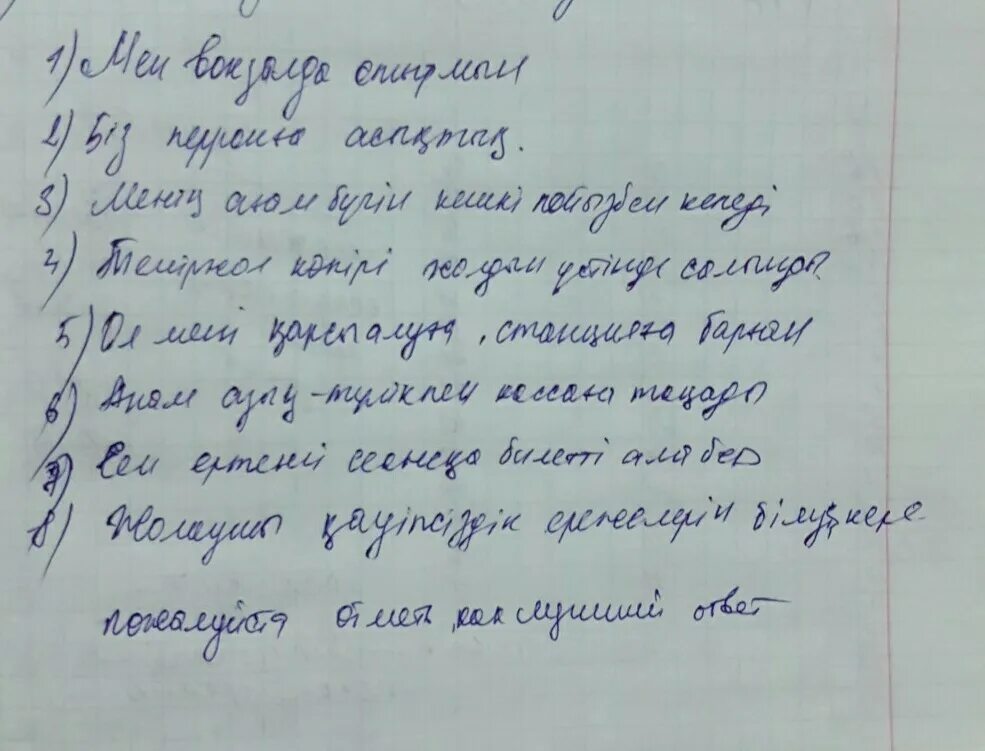 1) Мен вокзалда отырмын
2) Біз перронға асықтық.
3) Менің анам бүгін кешкі пойызбен келеді
4) Теміржол көпірі жолдың үстінде салынды.
5) Ол мені қарсы алуға, станцияға барған
6) Анам азық-түлікпен кассаға тоқады
7) Сен ертеңгі сеансқа билетті алып бер
8) Жолаушы қауіпсіздік ережелерін білу кере
пожалуйста отметь как лучший ответ